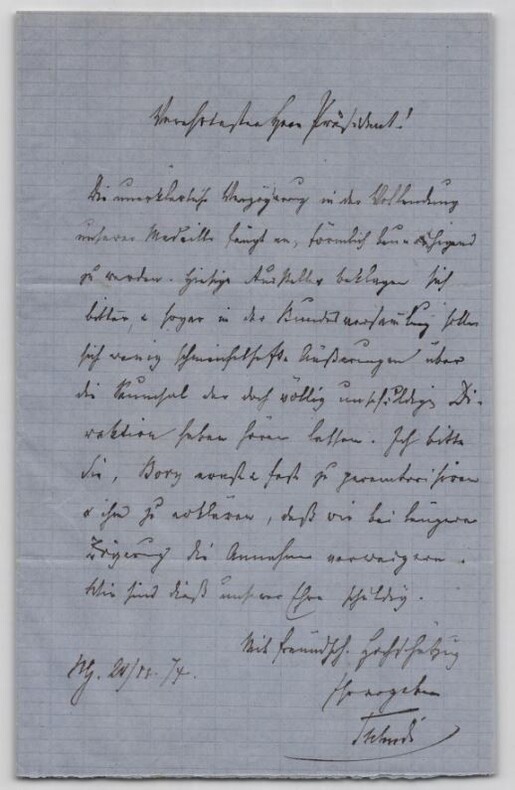 Verehrtester Herr Präsident!
Die unerklärliche Verzögerung in der Vollendung
unserer Medaille fängt an, förmlich beunruhigend
zu werden. Hiesige Aussteller beklagen sich
bitter, & sogar in der Bundesversammlung sollen
sich wenig schmeichelhafte Äußerungen über
die Saumsal der doch völlig unschuldigen Di-
rektion haben hören lassen. Ich bitte
Sie, Bovy ernst & fest zu
& ihm zu erklären, daß wir bei längerer
Zögerung die Annahme verweigern.
Wir sind dieß unserer Ehre schuldig.
Mit freundsch. Hochschätzung
Ihr ergeben
Tschudi
74.